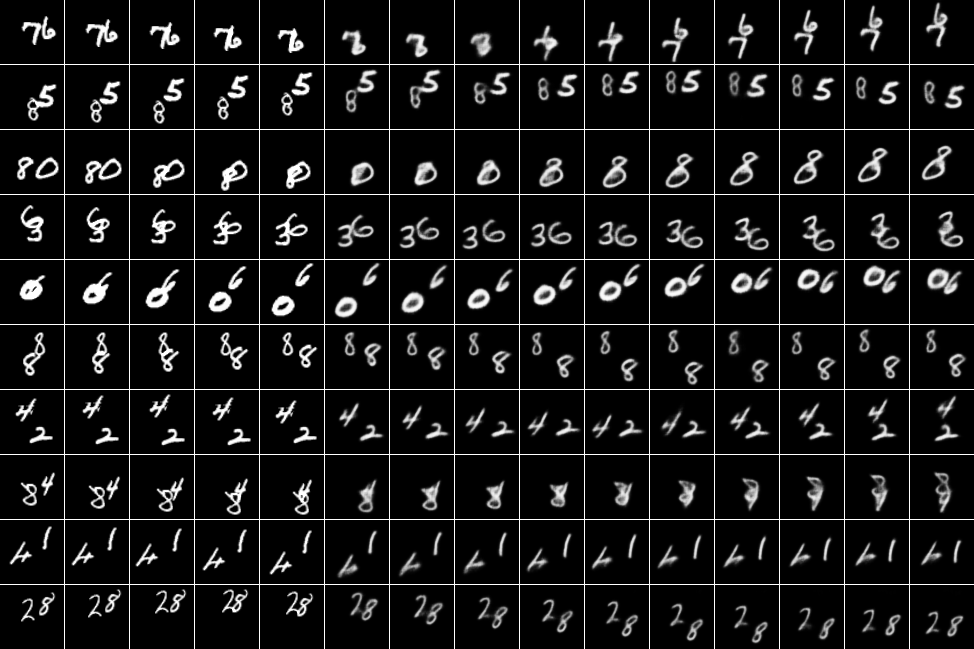 76 76 76 76 76 67 67 67 67 67 67
85 85 85 85 85 85 85 85 85 85 85 85 85 85 85
80 80 80 80 80 80 80 80 80 80 80 80
63 63 63 36 36 36 36 36 36 36 36 36 36 36
06 06 06 06 06 06 06 06 06 06 06 06 06 06 06
88 88 88 88 88 88 88 88 88 88 88 88 88 88 88
42 42 42 42 42 42 42 42 42 42 42 42 42 42 42
84 84 84 84 84
41 41 41 41 41 41 41 41 41 41 41 41 41 41 41
28 28 28 28 28 28 28 28 28 28 28 28 28 28 28